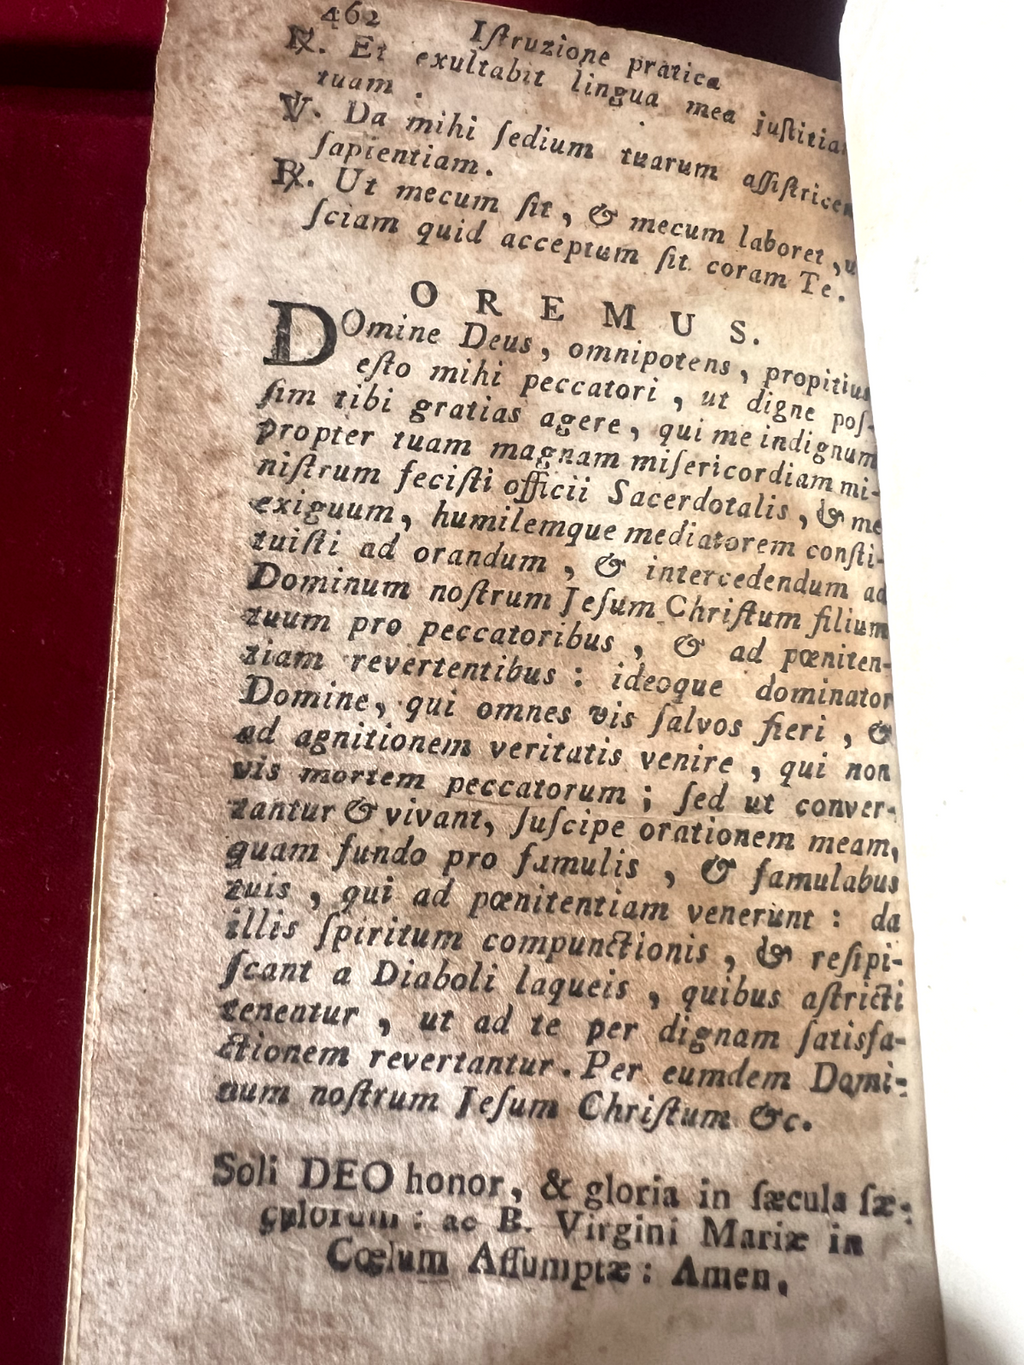 462 Iſtruzione pratica
℟. Et exultabit lingua mea juſtitiam
tuam .
℣. Da mihi ſedium tuarum aſſiſtricem
ſapientiam.
℟. Ut mecum ſit , & mecum laboret , u
ſciam quid acceptum ſit coram Te.
OREMUS.
DOmine Deus , omnipotens , propitius
eſto mihi peccatori , ut digne poſ-
ſim tibi gratias agere , qui me indignum
propter tuam magnam miſericordiam mi-
niſtrum feciſti officii Sacerdotalis , & me
exiguum, humilemque mediatorem conſti-
tuiſti ad orandum , & intercedendum ad
Dominum noſtrum Jeſum Chriſtum filium
tuum pro peccatoribus , & ad pœniten-
tiam revertentibus : ideoque dominator
Domine, qui omnes vis ſalvos fieri , &
ad agnitionem veritatis venire , qui non
vis mortem peccatorum ; ſed ut conver-
tantur & vivant, ſuſcipe orationem meam,
quam fundo pro famulis , & famulabus
tuis , qui ad pœnitentiam venerunt : da
illis ſpiritum compunctionis , & reſipi-
ſcant a Diaboli laqueis , quibus aſtricti
tenentur , ut ad te per dignam ſatisfa-
ctionem revertantur. Per eumdem Domi-
num noſtrum Jeſum Chriſtum &c.
Soli DEO honor, & gloria in ſæcula ſæ-
culorum : ac B. Virgini Mariæ in
Cœlum Aſſumptæ : Amen.